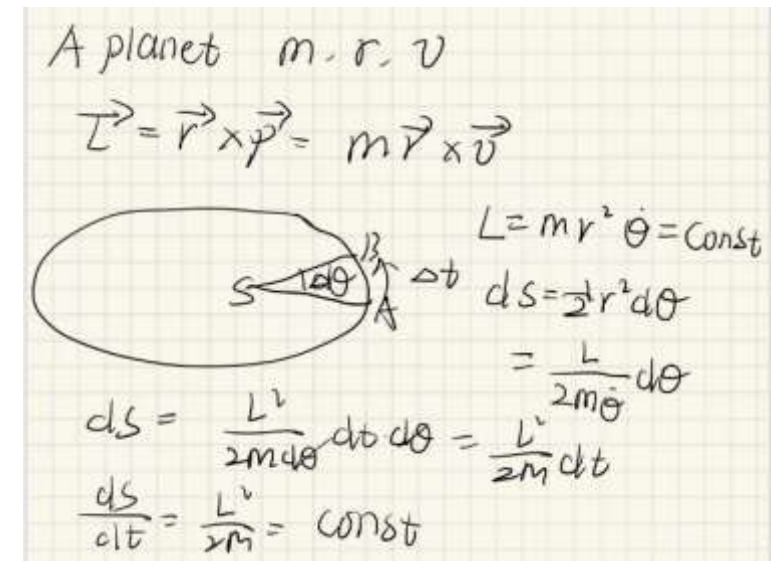 A planet m. r. v
L⃗ = r⃗ × p⃗ = m r⃗ × v⃗
L = m r² θ̇ = const
S Δθ B A Δt
dS = ½ r² dθ
= L / (2mθ̇) dθ
dS = L² / (2m dθ) dt dθ = L² / (2m) dt
dS/dt = L² / (2m) = const